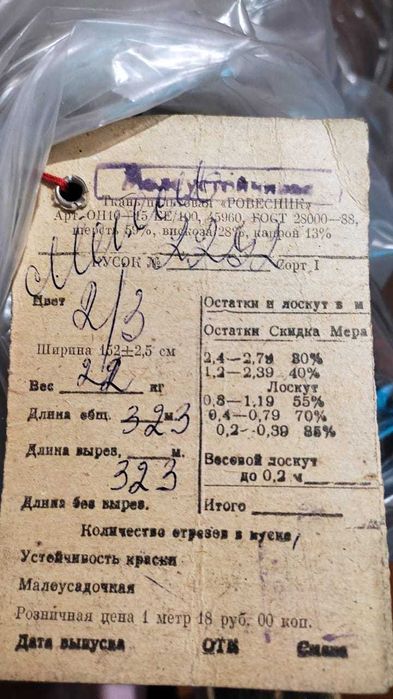 Малоусадочная
Ткань шелковая «РОВЕСНИК»
Арт. ОП10—15/КЕ/100, 45960, ГОСТ 28000—88,
шерсть 59%, вискоза 28%, капрон 13%
КУСОК № Сорт I
Цвет 2/3
Ширина 152±2,5 см
Вес 22 кг
Длина общ. 323 м.
Длина вырез. м.
323
Длина без вырез.
Остатки и лоскут в м
Остатки Скидка Мера
2,4—2,79 30%
1,2—2,39 40%
Лоскут
0,8—1,19 55%
0,4—0,79 70%
0,2—0,39 85%
Весовой лоскут
до 0,2 м
Итого
Количество отрезов в куске
Устойчивость краски
Малоусадочная
Розничная цена 1 метр 18 руб. 00 коп.
Дата выпуска ОТК Смена